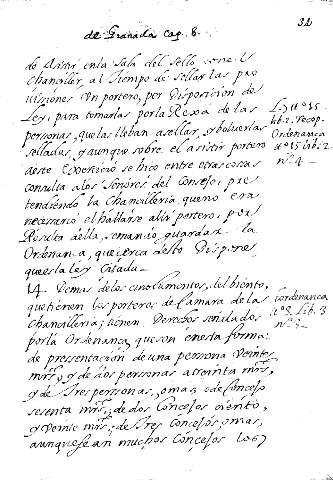 de Granada. Cap. 8.
32
de Asistir en la Sala del Sello con el
Chanciller, al tiempo de sellar las pro
uisiones Un portero, por Disposicion de
Ley, para tomarlas por la Rexa de las
personas, que las lleban a sellar, y boluerlas
selladas, y aunque sobre el asistir portero
a este Exercicio se hiço entre otras cosas
consulta a los Señores del Consejo, pre
tendiendo la Chancilleria, que no era
necesario el hallarse alli portero, por
Resulta de ella, se mando guardar la
Ordenança, que cerca de esto Dispone,
que es la ley Citada
14. Demas de los emolumentos, del biento,
que tienen los porteros de Camara de la
Chancilleria, tienen Derechos señalados
por la Ordenança, que son en esta forma:
de presentacion de una persona Veinte
mrs., y de dos personas a treinta mrs.,
y de tres personas, o mas, o de Conçejo
sesenta mrs., de dos Conçejos ciento,
y veinte mrs., de tres Conçejos, o mas,
aunque sean muchos Conçejos
L. 15
lib. 2. recop.
Ordenança
nº 15 lib. 2
nº 4
Ordenança
nº 8. Lib. 3